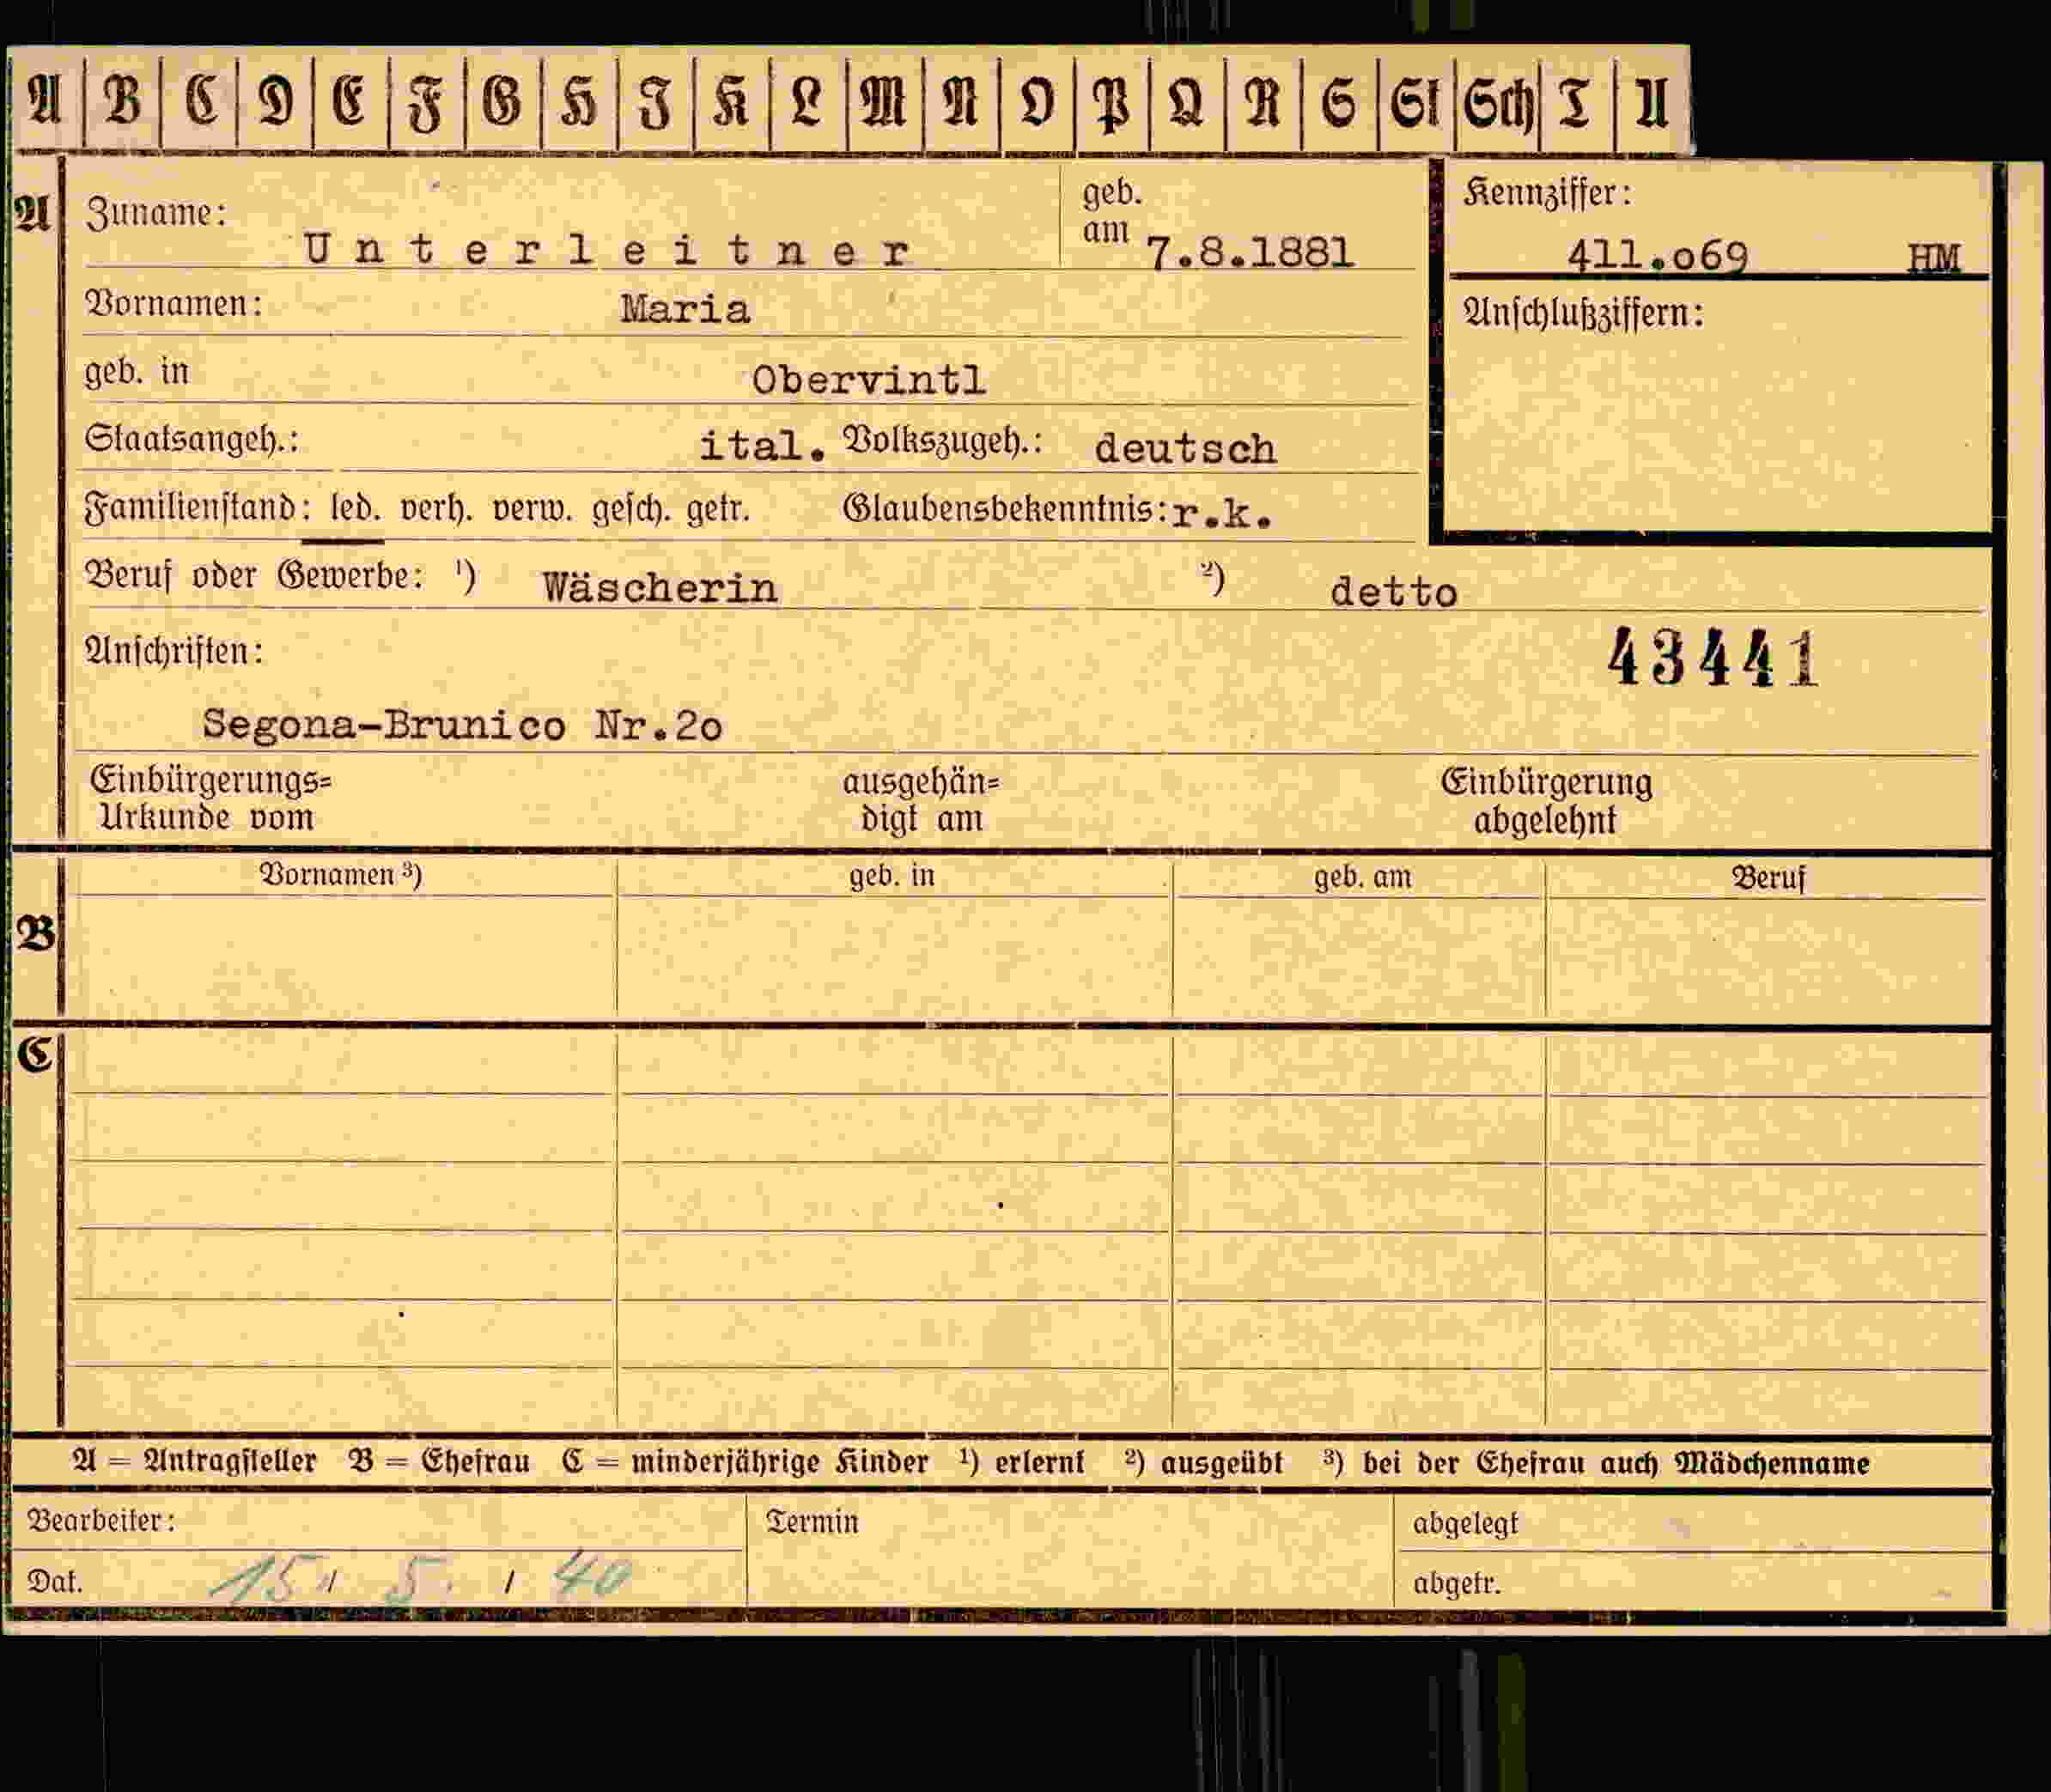 A B C D E F G H J K L M N O P Q R S St Sch T U
A Zuname: Unterleitner geb. am 7.8.1881 Kennziffer: 411.o69 HM
Vornamen: Maria Anschlußziffern:
geb. in Obervintl
Staatsangeh.: ital. Volkszugeh.: deutsch
Familienstand: led. verh. verw. gesch. getr. Glaubensbekenntnis: r.k.
Beruf oder Gewerbe: ¹) Wäscherin ²) detto
Anschriften: 43441
Segona-Brunico Nr.2o
Einbürgerungs= ausgehän= Einbürgerung
Urkunde vom digt am abgelehnt
Vornamen ³) geb. in geb. am Beruf
B
C
A = Antragsteller B = Ehefrau C = minderjährige Kinder ¹) erlernt ²) ausgeübt ³) bei der Ehefrau auch Mädchenname
Bearbeiter: Termin abgelegt
Dat. 15. / 5. / 40 abgetr.